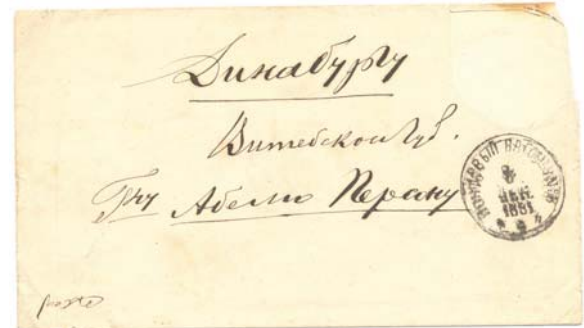 Динабургу
Витебской Губ.
Гну Абелю Перану
ПОЧТОВЫЙ ВАГОНЪ
8
ДЕК.
1881